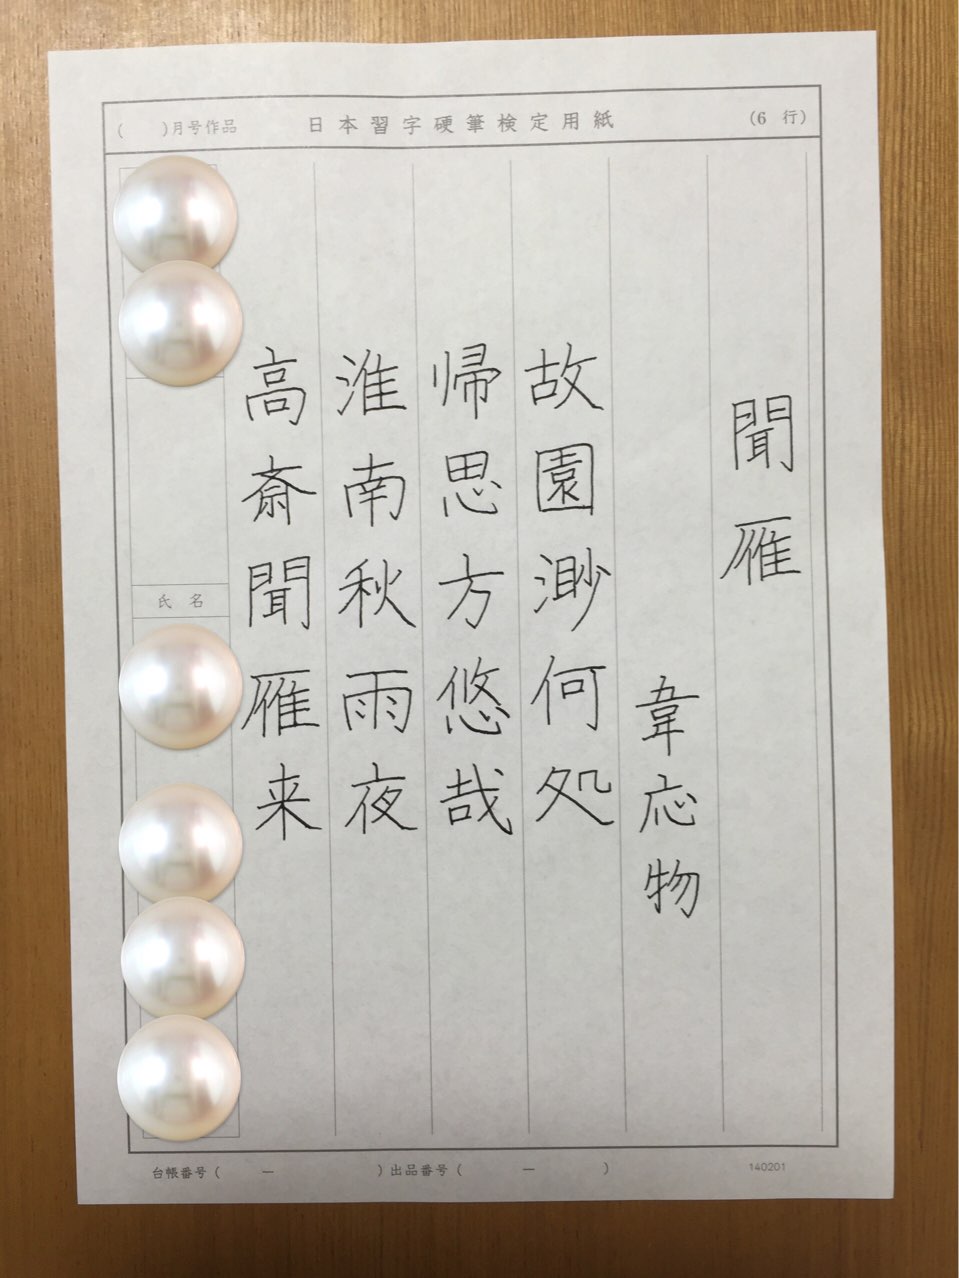 ( )月号作品 日本習字硬筆検定用紙 (6 行)
聞雁
韋応物
故園渺何処
帰思方悠哉
淮南秋雨夜
高斎聞雁来
氏名
台帳番号( ー )出品番号( ー ) 140201